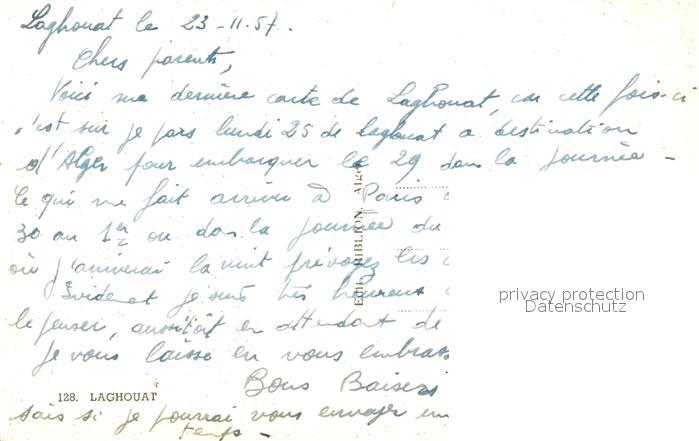 Laghouat le 23-11.57.
Chers parents,
Voici ma dernière carte de Laghouat, car cette fois-ci
c'est sur je pars lundi 25 de laghouat a destination
d'Alger pour embarquer le 29 dans la journée -
Ce qui me fait arriver à Paris
30 au 1er ou dans la journée du
où j'arriverai la nuit prévoyez les
Evidement je suis très heureux
le penser, aussitôt en attendant de
Je vous laisse en vous embras
Bons Baisers
128. LAGHOUAT
sais si je pourrai vous envoyer un
temps -
EDIT. BIBLION. Alger
privacy protection
Datenschutz